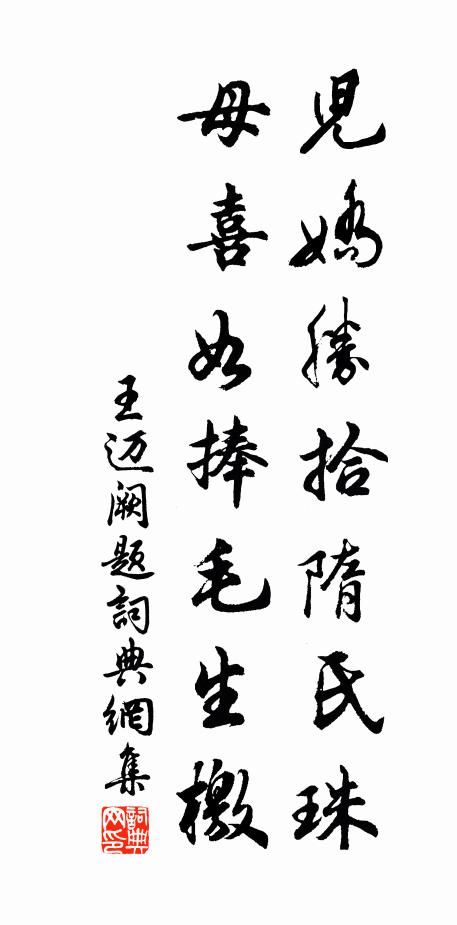 兒嬌勝拾隋氏珠
母喜如捧毛生檄
王迈阙题詞典網集
詞典网印